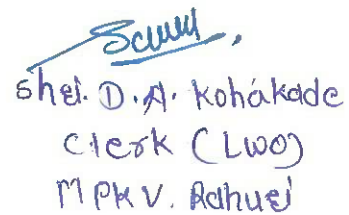 Shri. D. A. Kohakade
Clerk (LWO)
MPKV. Rahuri